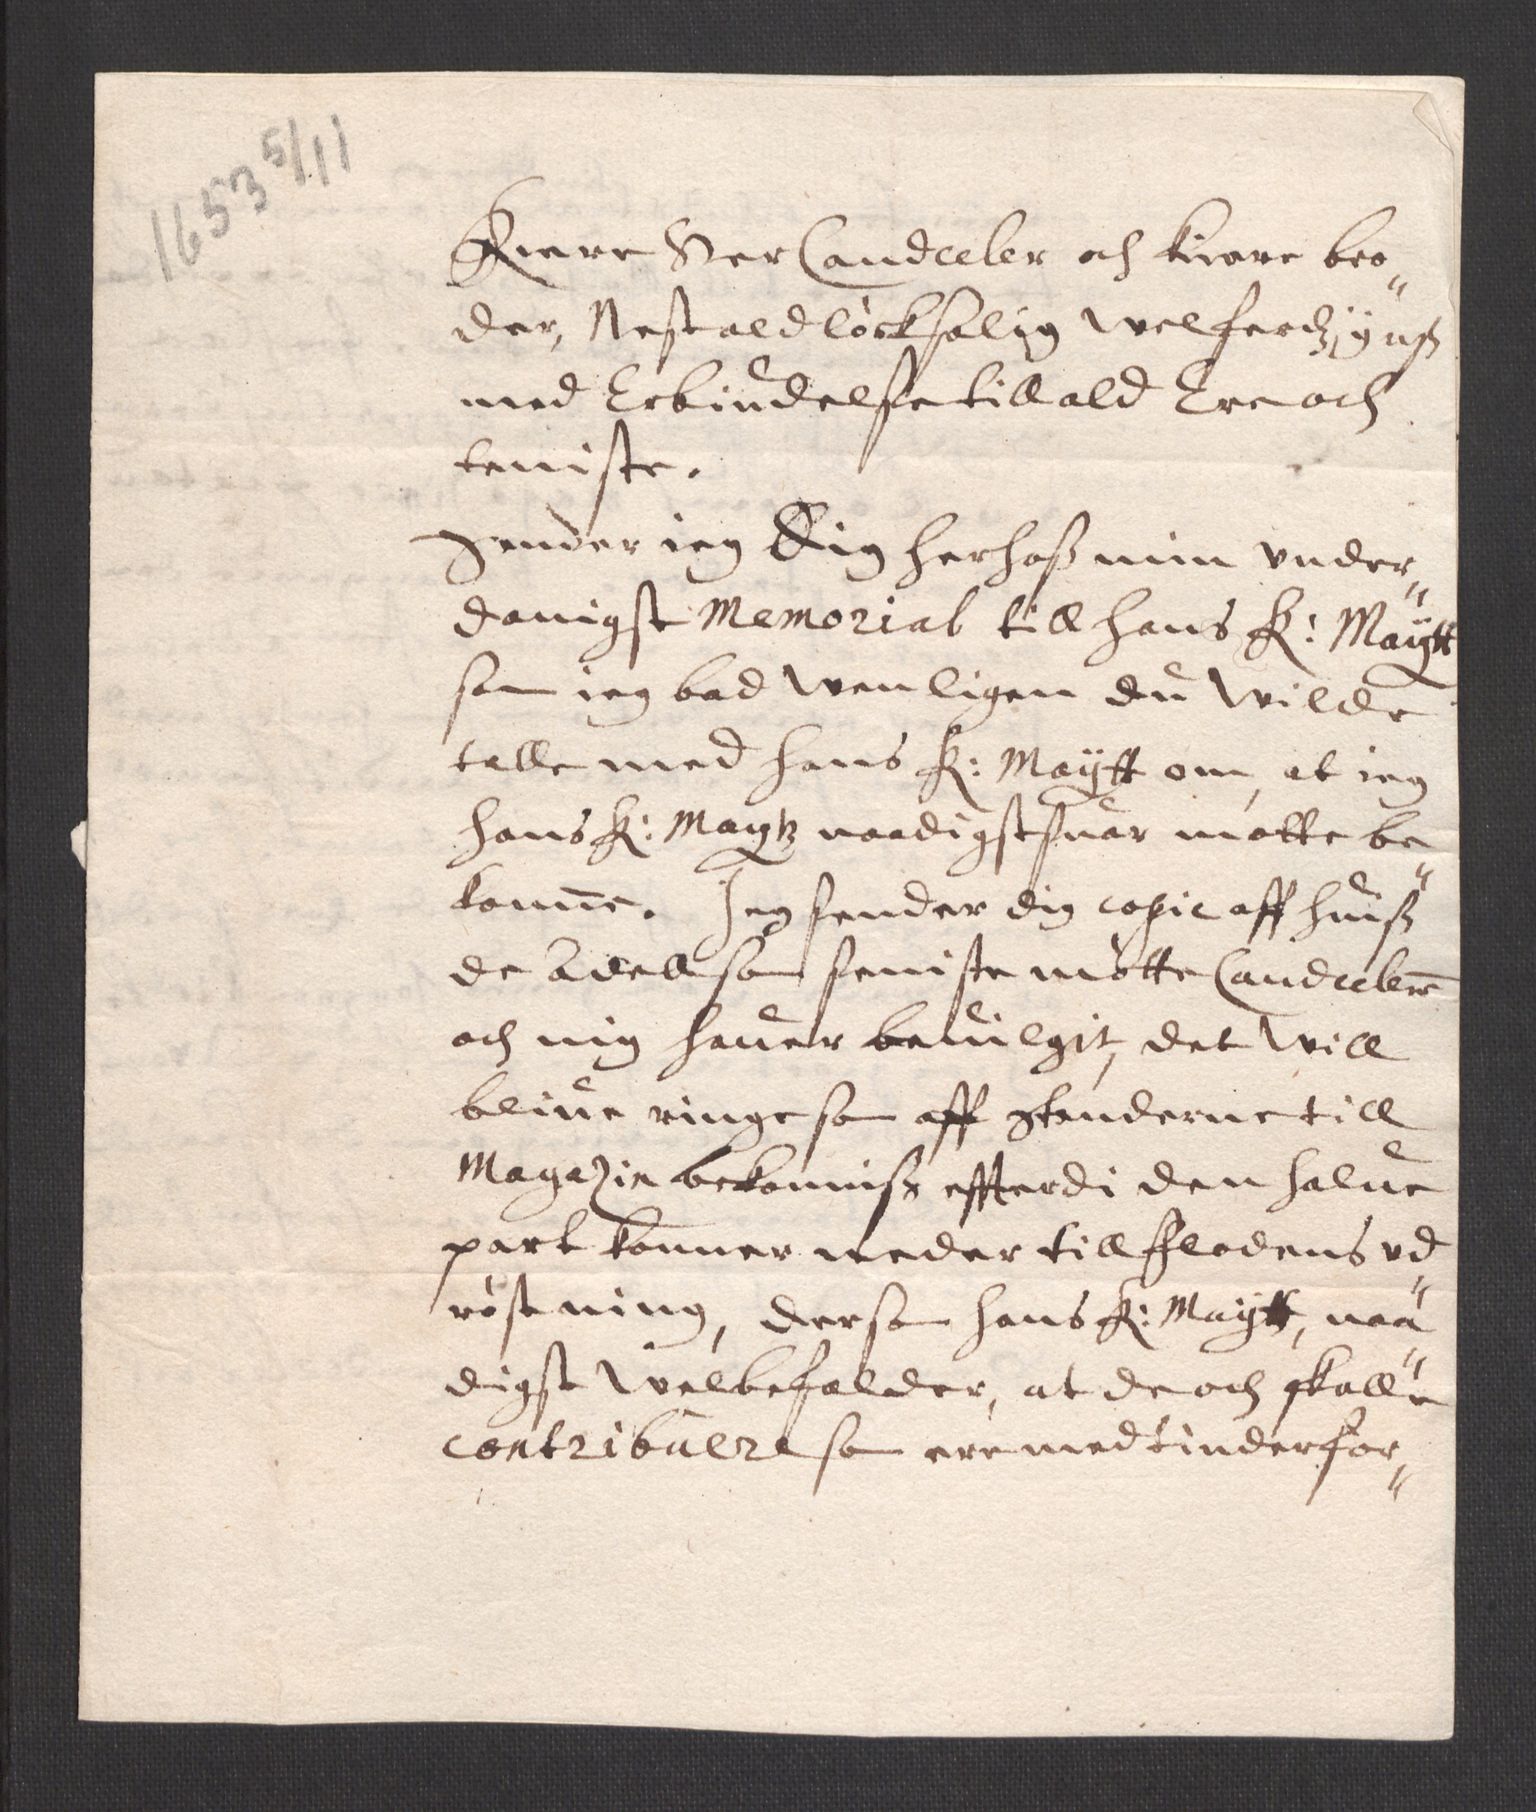 1653 5/11
Kiere Her Candceler och kiere bro„
der, Nest ald löcksalig welferdz ynsz
med Erbiudelse till ald Ere och
teniste.
Sender ieg Dig herhosz min vnder„
danigst Memorial till hans K: Maytt
som ieg bad wenligen du wilde
talle med hans K: Maytt om, at ieg
hans K: Maytz naadigst suar motte be„
komme. Jeg sender dig copie aff huisz
de Adell som seniste mötte Candceleren
och mig hauer beuilgit, det will
bliue ringe som aff Stenderne till
Magazin bekommisz efftterdi den halue
part kommer neder till flodens vd„
röstning, dersom hans K: Maytt, naa„
digst welbefalder, at de och skalle
contribuere som ere med tinder for„